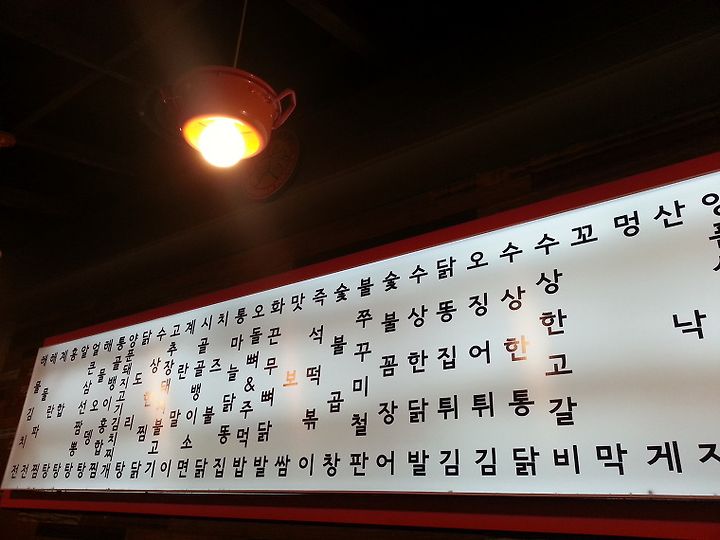 해물김치전
해물파전
계란찜
홍합탕
알탕
얼큰삼선짬뽕탕
해물오뎅탕
통골뱅이홍합찜
양푼돼지고기김치찌개
닭도리탕
수상한찜닭
고추장돼지불고기
계란말이
시골뱅이소면
치즈불닭
통마늘닭똥집
오돌뼈&주먹밥
화끈무뼈닭발
맛보쌈
즉석떡볶이
숯불곱창
불쭈꾸미철판
숯불꼼장어
수상한닭발
닭똥집튀김
오징어튀김
수상한통닭
수상한고갈비
꼬막
멍게
산낙지